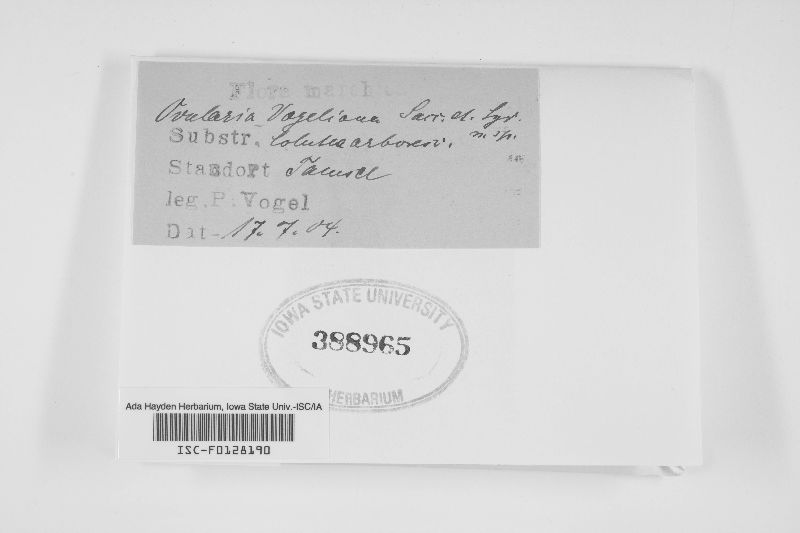 Flora march
Ovularia Vogeliana Sacc. et Syd.
Substr. Colutea arboresc. n. sp.
Standort Tamsel
leg. P. Vogel
Dat- 17. 7. 04.
IOWA STATE UNIVERSITY
388965
HERBARIUM
Ada Hayden Herbarium, Iowa State Univ.-ISC/IA
ISC-F0128190